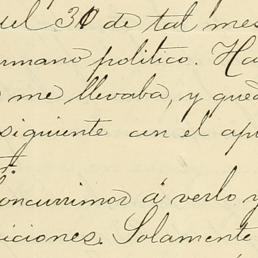 uel 31 de tal mes
rmano politico. Ha
me llevaba, y qued
siguiente con el apr
concurrimos á verlo y
iciones. Solamente